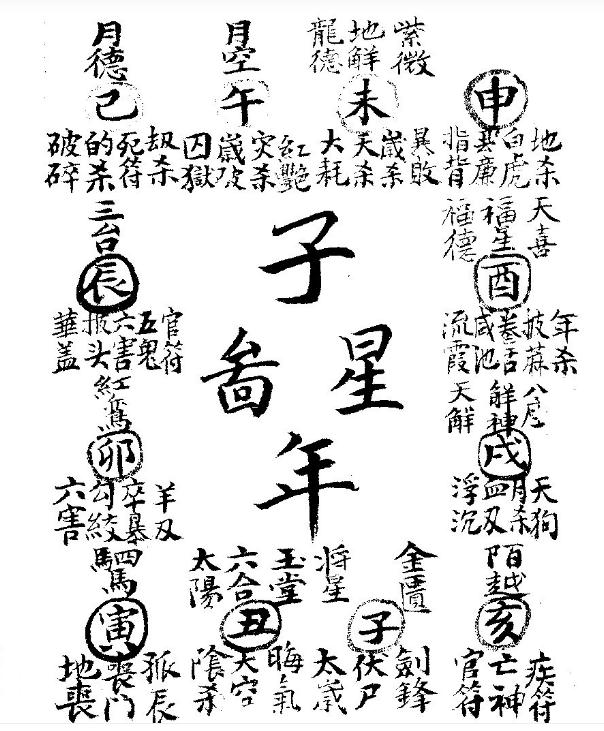 月德
巳
破碎
的杀
死符
劫杀
月空
午
囚獄
歲破
灾杀
紅艷
龍德
地解
紫微
未
大耗
天杀
歲杀
異敗
申
指背
蜚廉
白虎
地杀
子
年
啚
星
三台
辰
華盖
披头
六害
五鬼
官符
福德
福星
天喜
酉
流霞
咸池
卷舌
披麻
年杀
紅鸞
卯
六害
勾絞
卒暴
羊刃
天解
解神
八座
戌
浮沉
血刃
月杀
天狗
駟馬
寅
地喪
喪门
孤辰
太陽
六合
玉堂
丑
陰杀
天空
晦氣
将星
金匱
子
太歲
伏尸
劍鋒
陌越
亥
官符
亡神
疾符